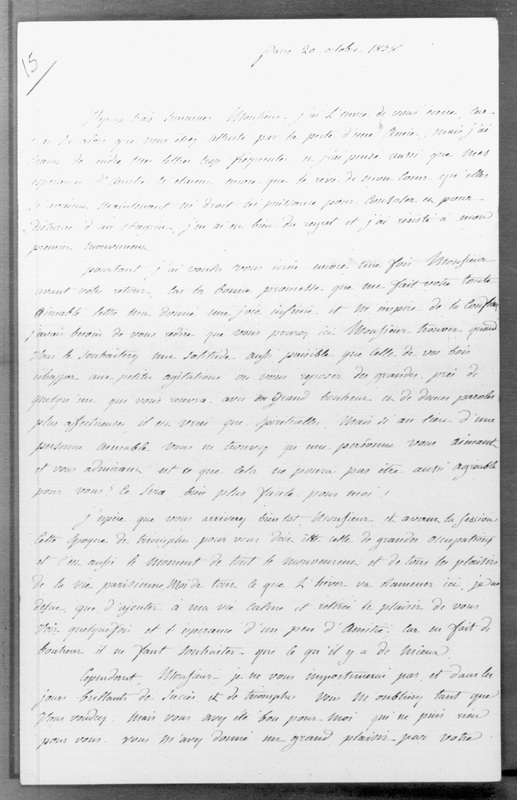 15
Paris 20 octobre 1838
Monsieur, j'ai l'envie de vous écrire,
que vous étiez attristé par la perte d'une Amie, mais j'ai
de lettres trop fréquentes et j'ai pensé aussi que mes
d'amitié le rêve de mon Coeur qu'elles
maintenant ni droit ni puissance pour Consoler ou pour
distraire d'un chagrin, j'en ai eu bien du regret et j'ai résisté à mon
premier mouvement
pourtant j'ai voulu vous écrire encore une fois Monsieur
avant votre retour, Car la bonne promesse que me fait votre toute
aimable lettre m'a donné une joie infinie et m'inspire de la Confiance
j'avais besoin de vous redire que vous pouvez ici Monsieur trouver quand
Vous le souhaiterez une Solitude aussi paisible que Celle de vos bois
échapper aux petites agitations ou vous reposer des grandes, près de
quelqu'un qui vous recevra avec un Grand bonheur et de douces paroles
plus affectueuses il est vrai que spirituelles. Mais si au lieu d'une
personne aimable vous ne trouvez qu'une personne vous aimant
et vous admirant est ce que cela ne pourra pas être aussi agréable
pour vous? Ce Sera bien plus facile pour moi!
j'espère que vous arriverez bientôt Monsieur et avant la Session
Cette époque de triomphe pour vous doit être celle de grandes occupations
et c'est aussi le moment de tout le mouvement et de tous les plaisirs
de la vie parisienne, Moi de tout ce que l'hiver va ramener ici, je ne
désire que d'ajouter à ma vie calme et retirée le plaisir de vous
Voir quelquefois et l'espérance d'un peu d'Amitié, Car en fait de
bonheur il ne faut Souhaiter que ce qu'il y a de mieux.
Cependant, Monsieur, je ne vous importunerai pas, et dans les
jours brillants de Succès et de triomphe Vous m'oublierez tant que
Vous voudrez. Mais vous avez été bon pour Moi qui ne puis rien
pour vous. Vous m'avez donné un grand plaisir par votre